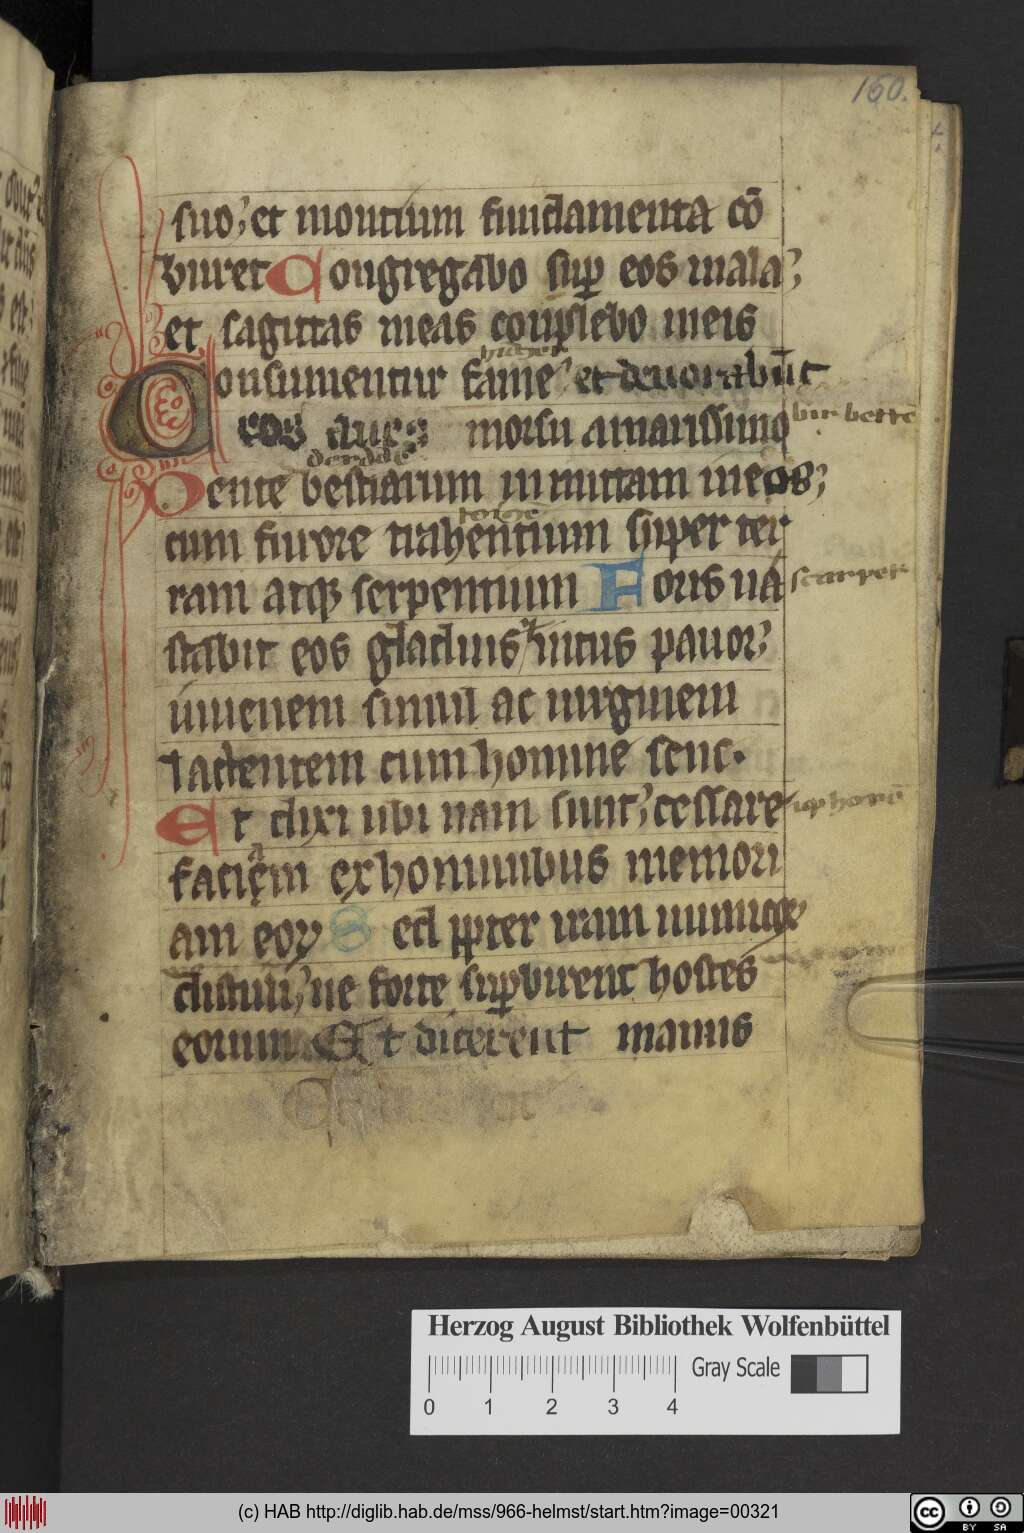 160.
suo, et montium fundamenta cō
buret Congregabo sup eos mala,
et sagittas meas complebo meis
Consumentur fame et deuorabūt
eos aues morsu amarissimo
Dente bestiarum inmittam in eos,
cum furore trahentium super ter
ram atq serpentium Foris ua
stabit eos gladius, intus pauor,
iuuenem simul ac uirginem
lactentem cum homine sene.
Et dixi ubi nam sunt, cessare
faciam ex hominibus memori
am eoꝝ Sed ppter iram inimicoꝝ
distuli, ne forte supbirent hostes
eorum Et dicerent manus
Herzog August Bibliothek Wolfenbüttel
Gray Scale
0 1 2 3 4
(c) HAB http://diglib.hab.de/mss/966-helmst/start.htm?image=00321
cc BY SA